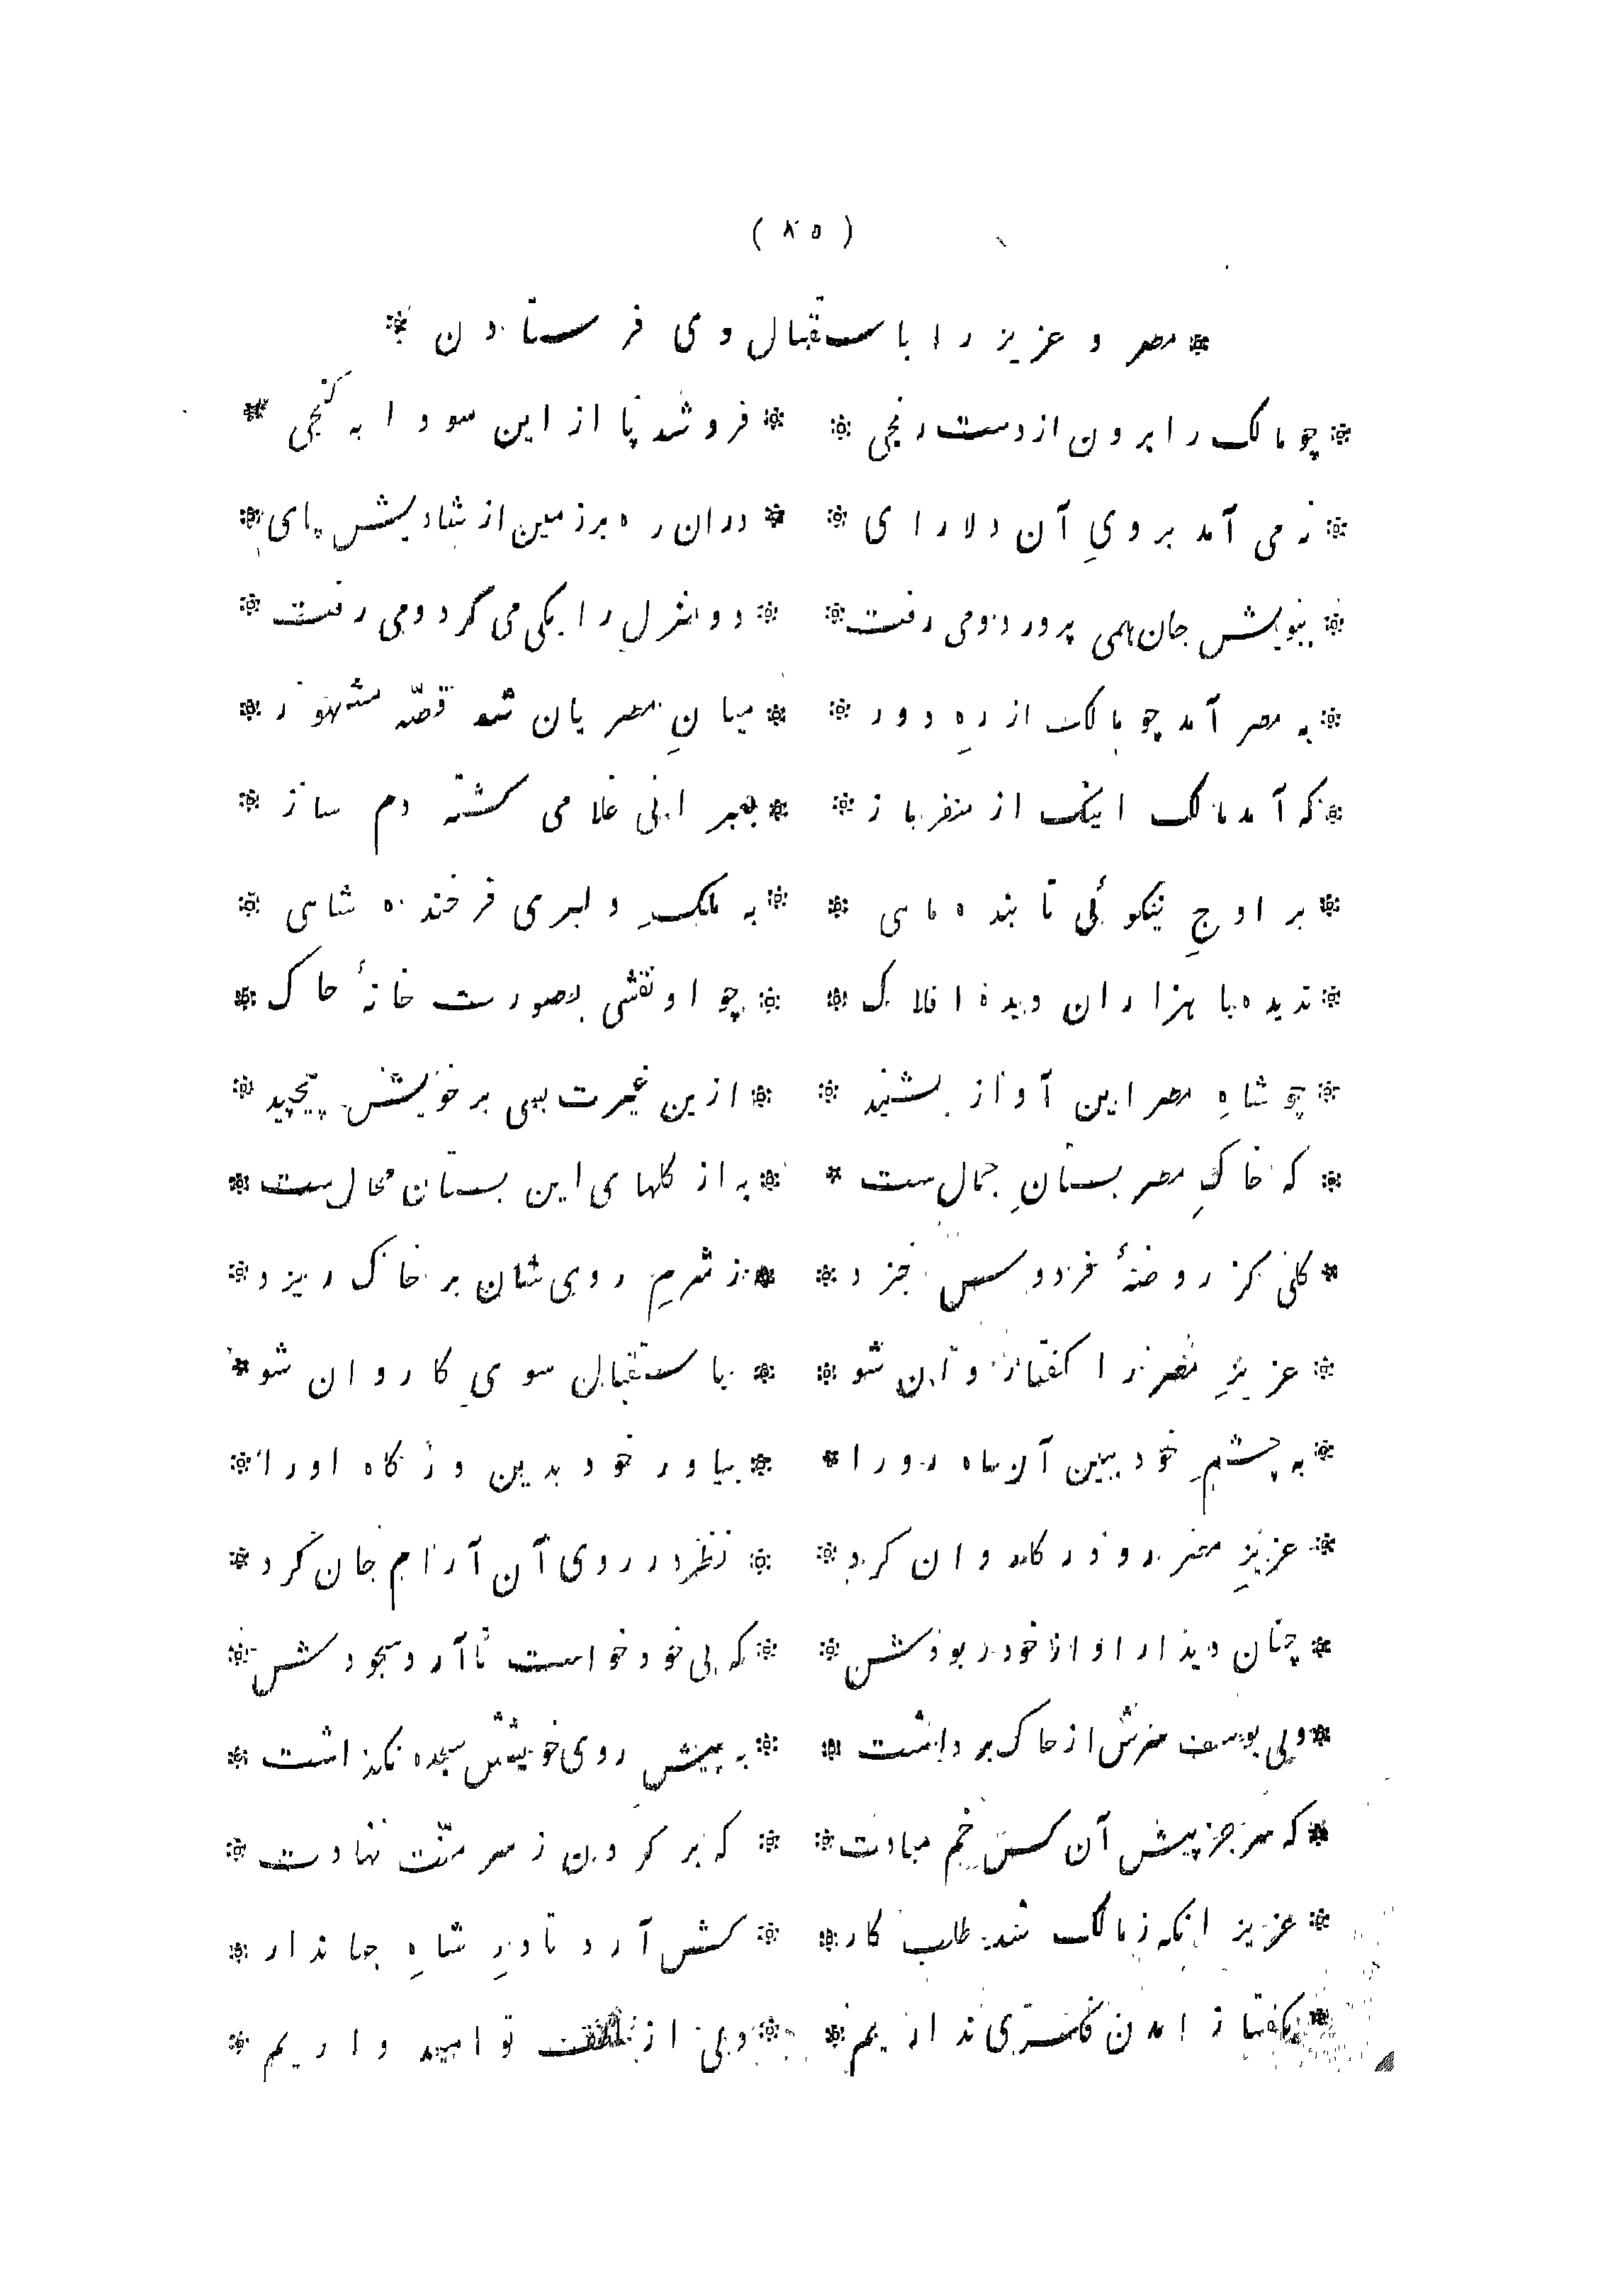 ( ۸۵ )
* مصر و عزیز را باستقبال وی فرستادن *
* چو مالک را برون از دست رنجی * * فرو شد پا از این سودا به گنجی *
* نه می آمد بروی آن دلارای * * دران ره بر زمین از شادیش پای *
* ببویش جان همی پرورد و می رفت * * دو منزل را یکی می کرد و می رفت *
* به مصر آمد چو مالک از رهِ دور * * میانِ مصریان شد قصّه مشهور *
* که آمد مالک اینک از سفر باز * * بعبرانی غلامی گشته دم ساز *
* بر اوجِ نیکوئی تابنده ماهی * * به ملکِ دلبری فرخنده شاهی *
* ندیده با هزاران دیدهٔ افلاک * * چو او نقشی بصورت خانهٔ خاک *
* چو شاهِ مصر این آواز بشنید * * ازین غیرت بسی بر خویش پیچید *
* که خاکِ مصر بستانِ جمال ست * * به از گلهای این بستان محال ست *
* گلی کز روضهٔ فردوس خیزد * * ز شرمِ روی شان بر خاک ریزد *
* عزیزِ مصر را گفتا روان شو * * باستقبال سوی کاروان شو *
* به چشمِ خود ببین آن ماه رو را * * بیاور خود بدین درگاه او را *
* عزیزِ مصر رو در کاروان کرد * * نظر در روی آن آرام جان کرد *
* چنان دیدار او از خود ربودش * * که بی خود خواست تا آرد سجودش *
* ولی یوسف سرش از خاک برداشت * * به پیش روی خویشش سجده نگذاشت *
* که سر جز پیش آن کس خم مبادت * * که بر گردن ز سر منّت نهادت *
* عزیز انگه ز مالک شد طلب گار * * کش آرد تا درِ شاهِ جاندار *
* بگفتا ز امدن فکری نداریم * * ولی از لطفت تو امید داریم *